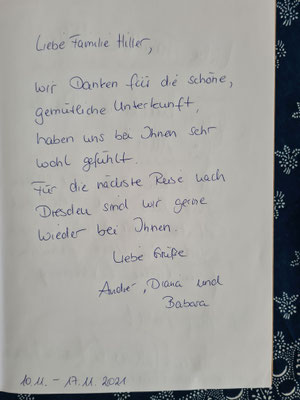 Liebe Familie Hiller,
wir Danken für die schöne,
gemütliche Unterkunft,
haben uns bei Ihnen sehr
wohl gefühlt.
Für die nächste Reise nach
Dresden sind wir gerne
wieder bei Ihnen.
Liebe Grüße
André, Diana und
Babara
10.11. – 17.11.2021